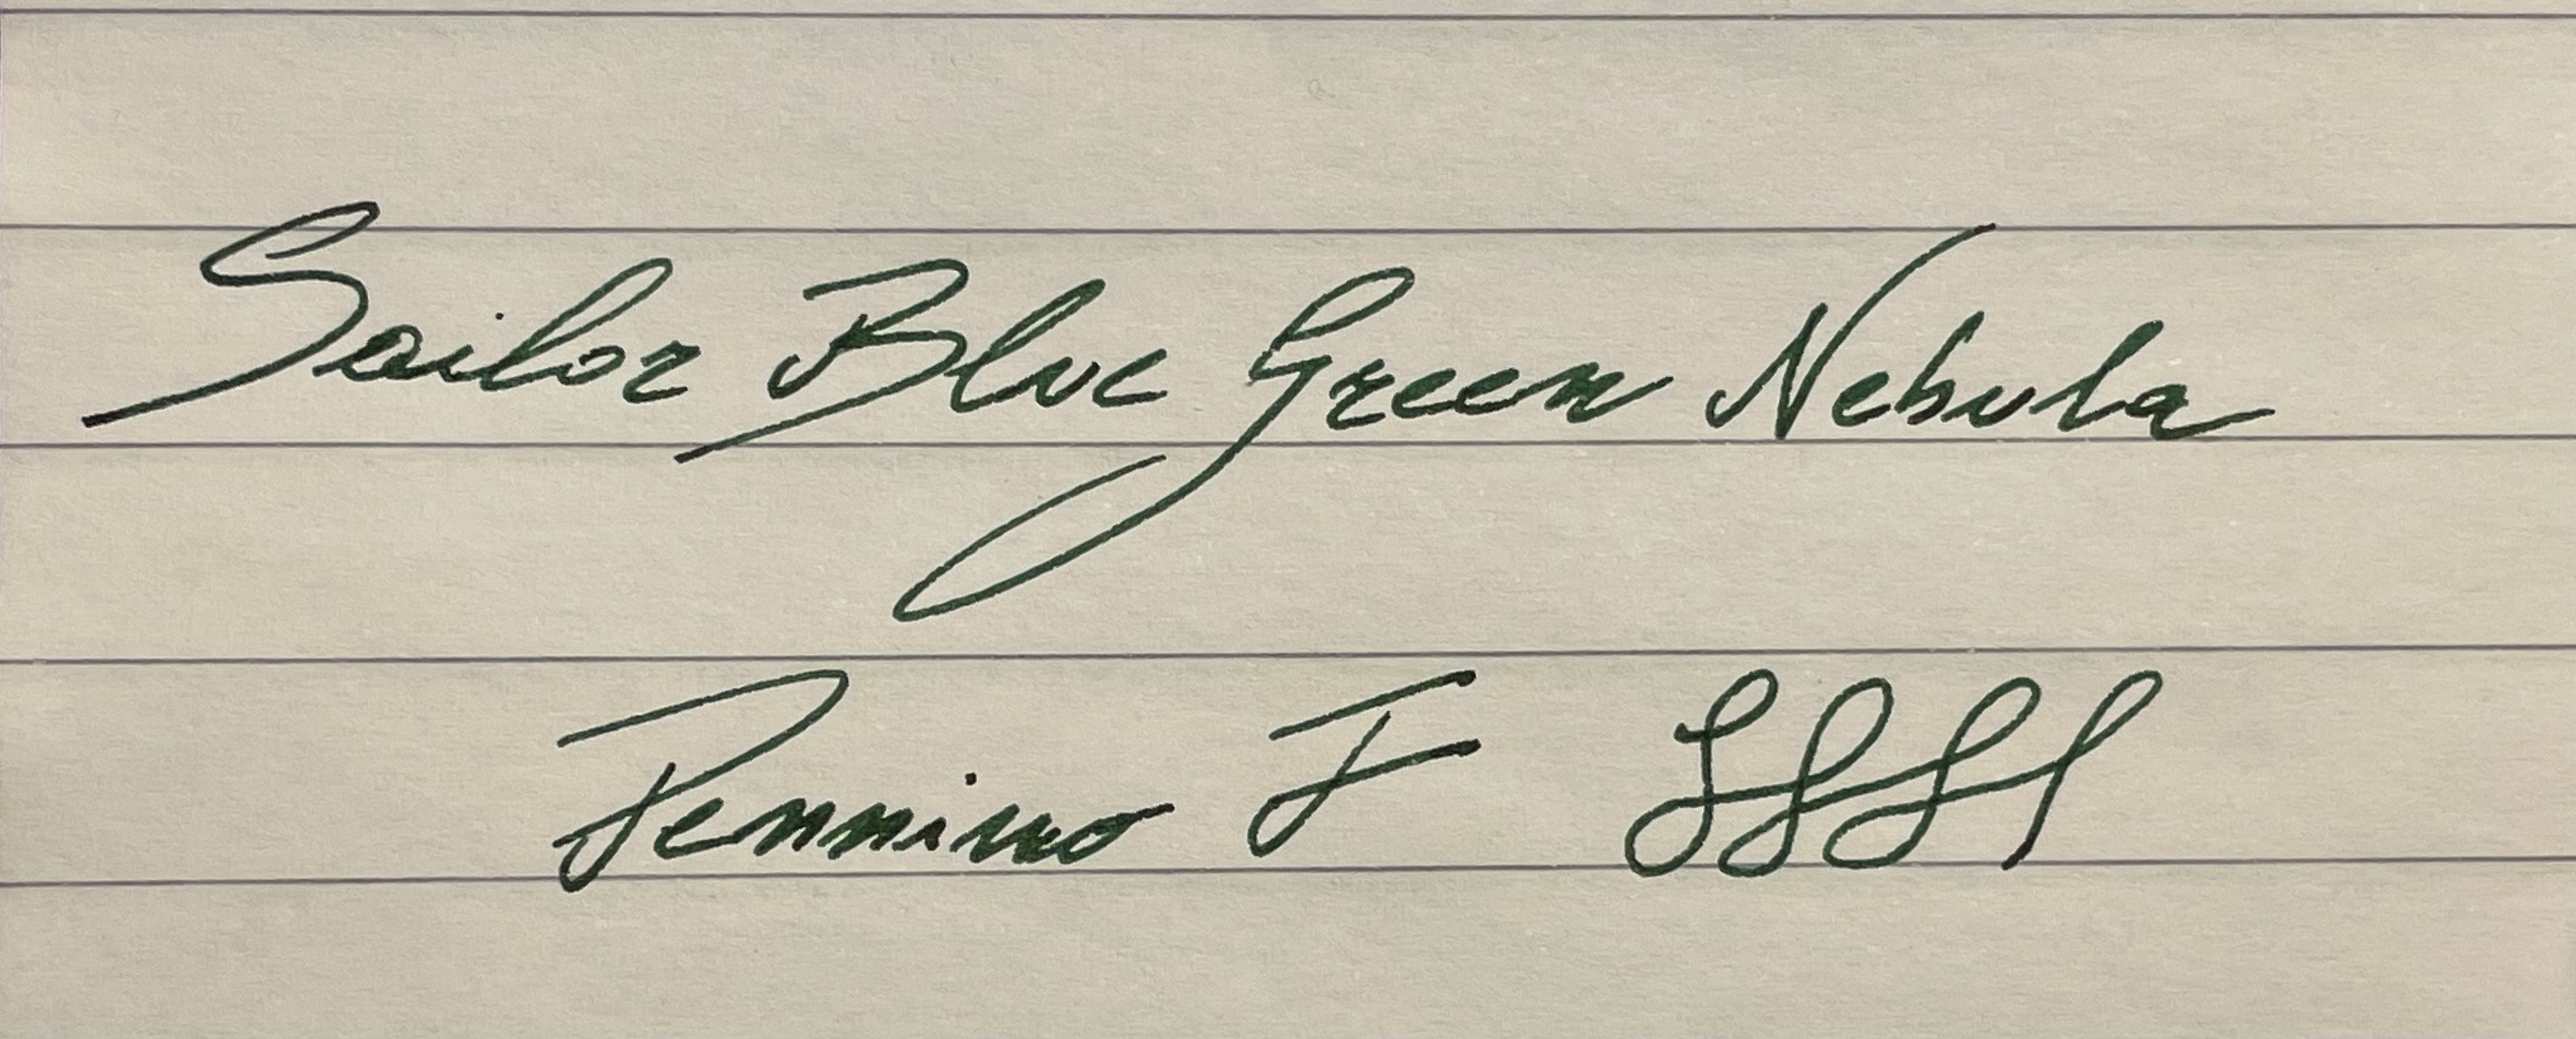 Sailor Blue Green Nebula
Pennino F